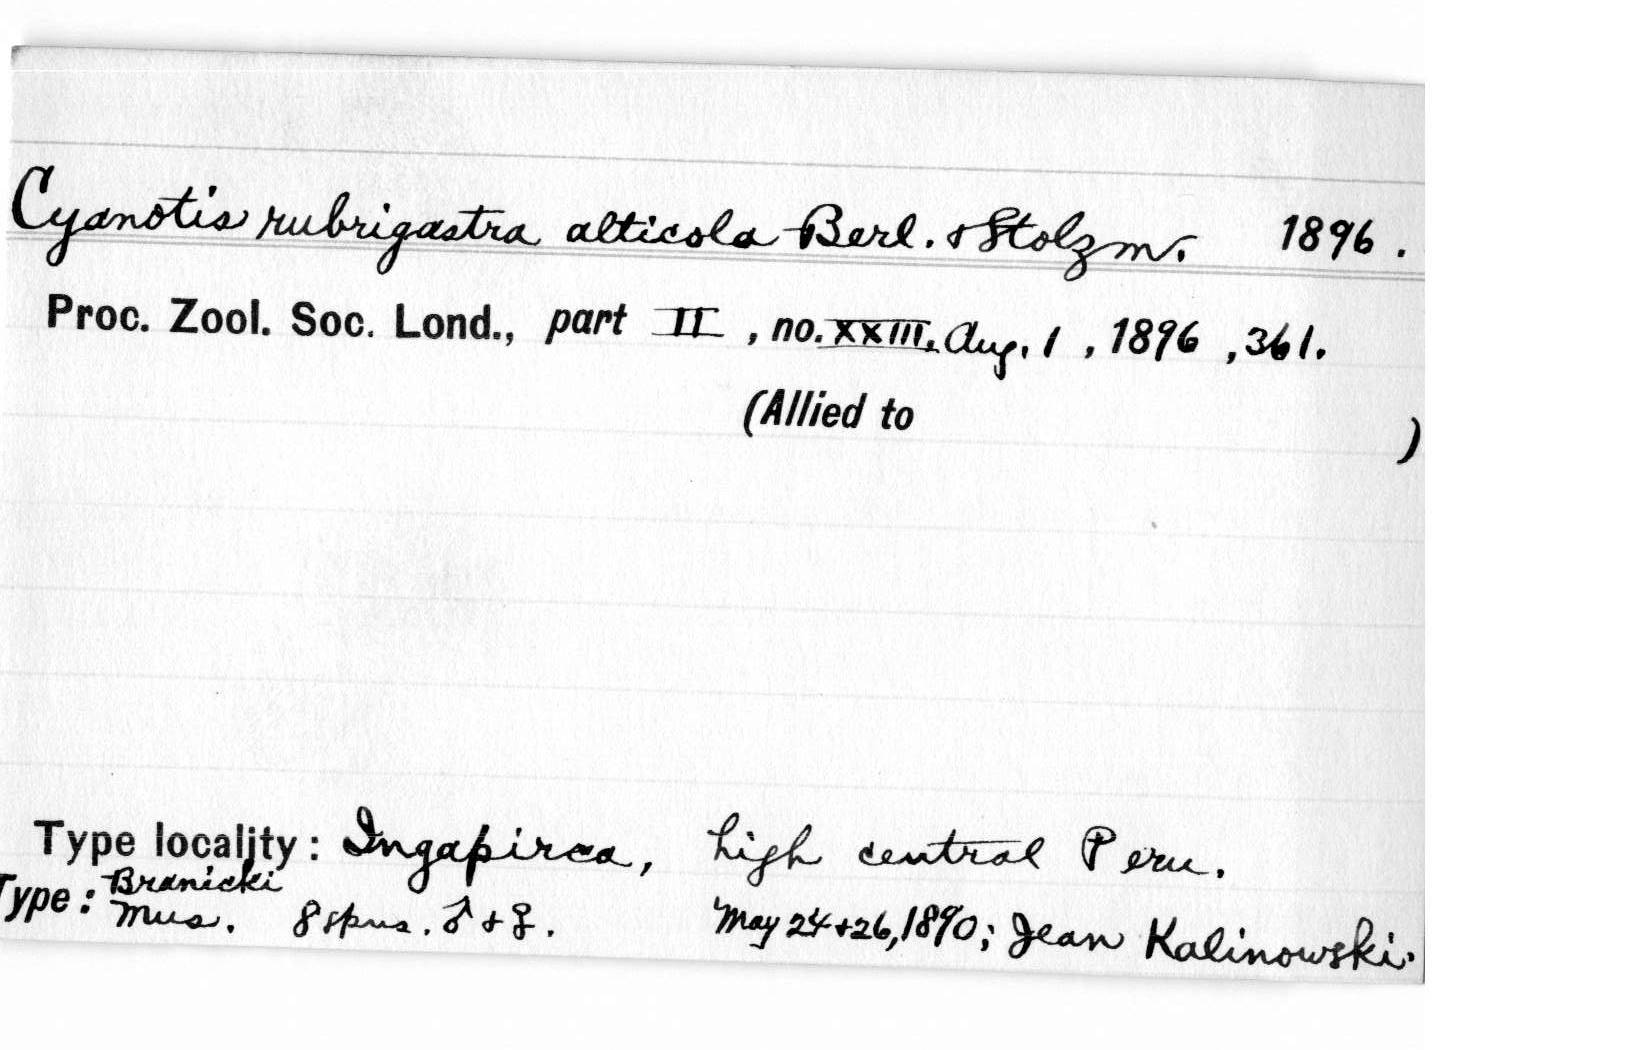 Cyanotis rubrigastra alticola Berl. & Stolzm. 1896.
Proc. Zool. Soc. Lond., part II, no. XXIII, Aug. 1, 1896, 361.
(Allied to )
Type locality: Ingapirca, high central Peru.
Type: Branicki Mus. 8 spns. ♂ + ♀. May 24 + 26, 1890; Jean Kalinowski.